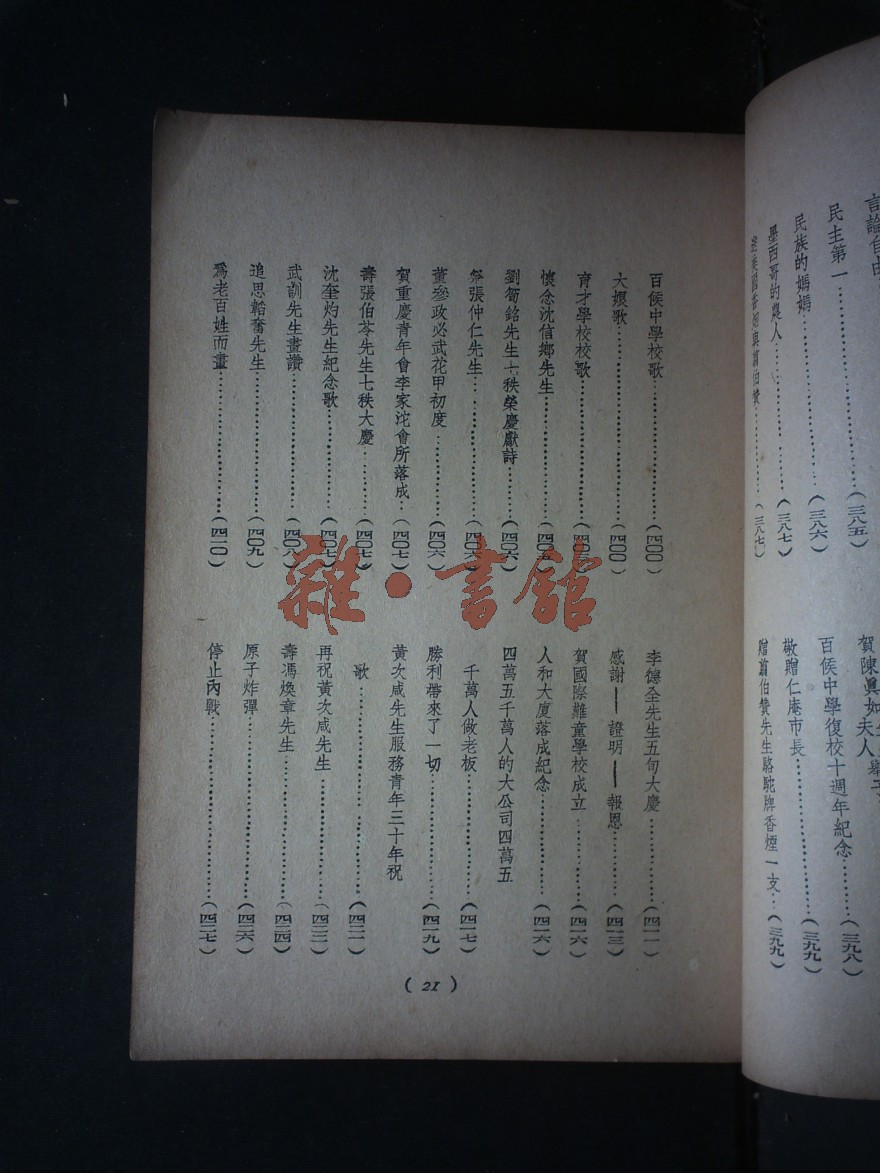 言論自由
民主第一……(三八五)
民族的媽媽……(三八六)
墨西哥的農人……(三八七)
與翦伯贊……(三八七)
賀陳眞如夫人
百侯中學復校十週年紀念……(三九八)
敬贈仁庵市長……(三九九)
贈翦伯贊先生駱駝牌香煙一支…(三九九)
百侯中學校歌……(四〇〇)
大孃歌……(四〇〇)
育才學校校歌……
懷念沈信鄉先生……(四〇五)
劉筍銘先生七秩榮慶獻詩……(四〇六)
祭張仲仁先生……(四〇六)
董參政必武花甲初度……(四〇六)
賀重慶青年會李家沱會所落成…(四〇七)
壽張伯苓先生七秩大慶……(四〇七)
沈奎灼先生紀念歌……(四〇七)
武訓先生畫讚……(四〇八)
追思韜奮先生……(四〇九)
爲老百姓而畫……(四一〇)
李德全先生五旬大慶……(四一一)
感謝——證明——報恩……(四一三)
賀國際難童學校成立……(四一六)
人和大廈落成紀念……(四一六)
四萬五千萬人的大公司四萬五
千萬人做老板……(四一七)
勝利帶來了一切……(四一九)
黃次咸先生服務青年三十年祝
歌……(四二一)
再祝黃次咸先生……(四二三)
壽馮煥章先生……(四二四)
原子炸彈……(四二六)
停止內戰……(四二七)
( 21 )
雜·書館